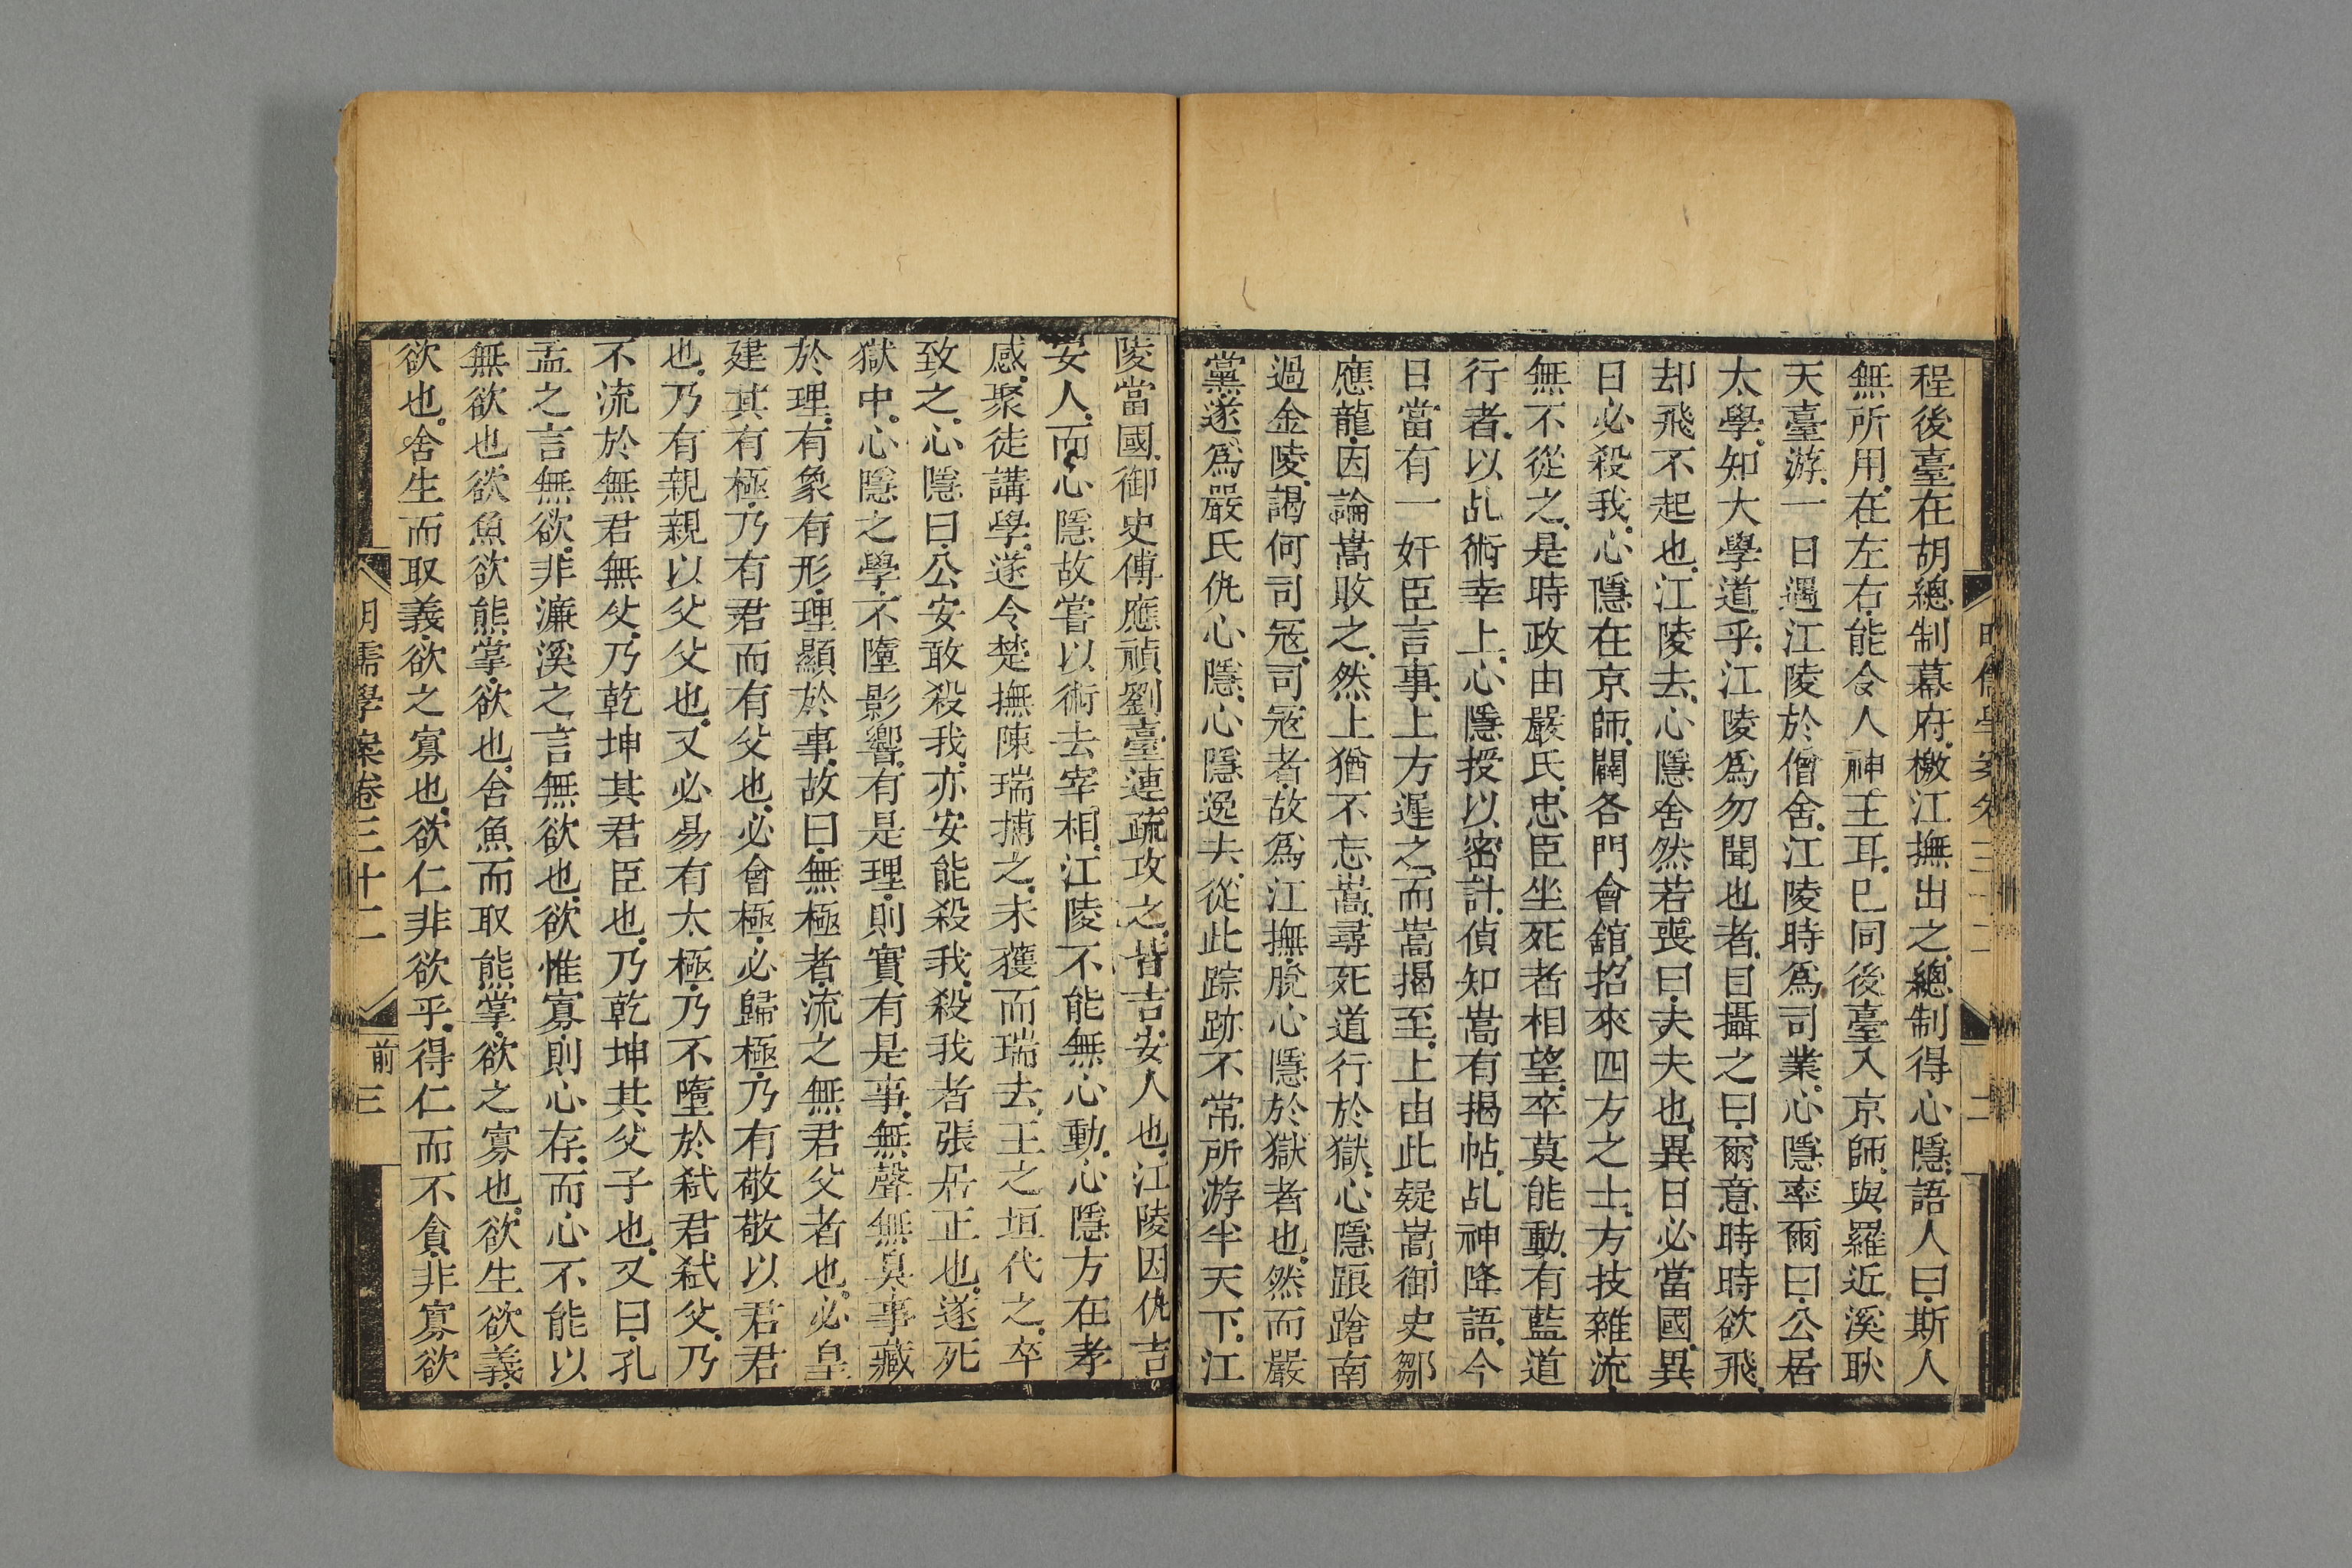 程後臺在胡總制幕府檄江撫出之總制得心隱語人曰斯人
無所用在左右能令人神王耳已同後臺入京師與羅近溪耿
天臺游一日遇江陵於僧舍江陵時爲司業心隱率爾曰公居
太學知大學道乎江陵爲勿聞也者目攝之曰爾意時時欲飛
却飛不起也江陵去心隱舍然若喪曰夫夫也異日必當國異
日必殺我心隱在京師闢各門會舘招來四方之士方技雜流
無不從之是時政由嚴氏忠臣坐死者相望卒莫能動有藍道
行者以乩術幸上心隱授以密計偵知嵩有揭帖乩神降語今
日當有一奸臣言事上方遲之而嵩揭至上由此疑嵩御史鄒
應龍因論嵩敗之然上猶不忘嵩尋死道行於獄心隱踉蹌南
過金陵謁何司寇司寇者故爲江撫脫心隱於獄者也然而嚴
黨遂爲嚴氏仇心隱心隱逸去從此踪跡不常所游半天下江
陵當國御史傅應禎劉臺連疏攻之皆吉安人也江陵因仇吉
安人而心隱故嘗以術去宰相江陵不能無心動心隱方在孝
感聚徒講學遂令楚撫陳瑞捕之未獲而瑞去王之垣代之卒
致之心隱曰公安敢殺我亦安能殺我殺我者張居正也遂死
獄中心隱之學不墮影響有是理則實有是事無聲無臭事藏
於理有象有形理顯於事故曰無極者流之無君父者也必皇
建其有極乃有君而有父也必會極必歸極乃有敬敬以君君
也乃有親親以父父也又必易有太極乃不墮於弒君弒父乃
不流於無君無父乃乾坤其君臣也乃乾坤其父子也又曰孔
孟之言無欲非濂溪之言無欲也欲惟寡則心存而心不能以
無欲也欲魚欲熊掌欲也舍魚而取熊掌欲之寡也欲生欲義
欲也舍生而取義欲之寡也欲仁非欲乎得仁而不貪非寡欲
明儒學案卷三十二
前三